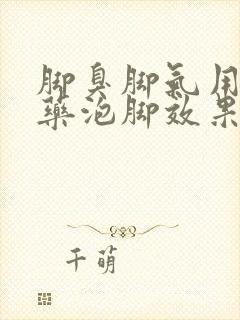 脚臭脚氣用
藥泡脚效果
千萌